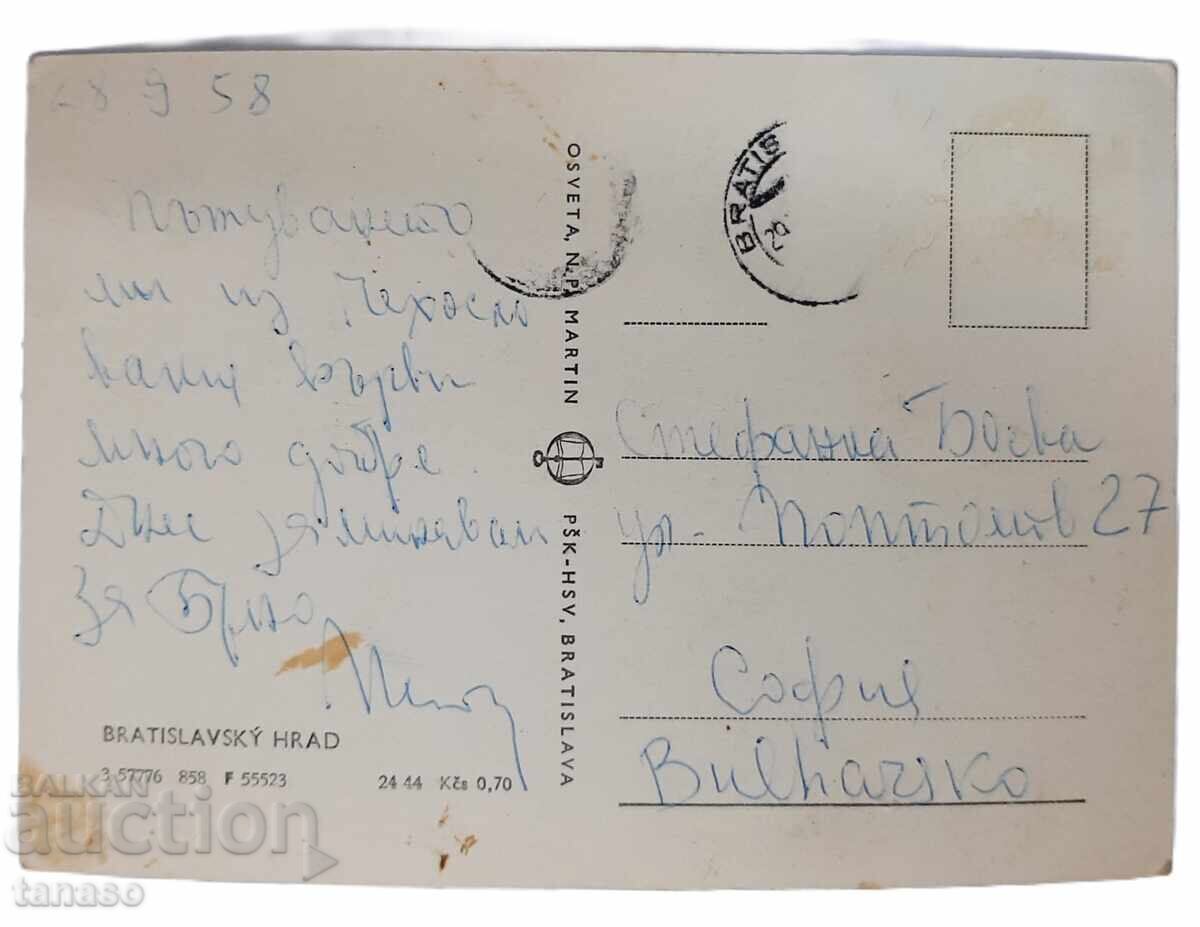 28 9 58
Пътуването
ми из Чехосло
вакия върви
много добре.
Днес заминавам
за Бърно
BRATISLAVSKÝ HRAD
3 57776 858 F 55523 24 44 Kčs 0,70
OSVETA, N. P. MARTIN
PŠK-HSV, BRATISLAVA
BRATIS
29
Стефанка Боева
ул. Поптомов 27
София
Bulharsko
BALKAN
auction
tanaso